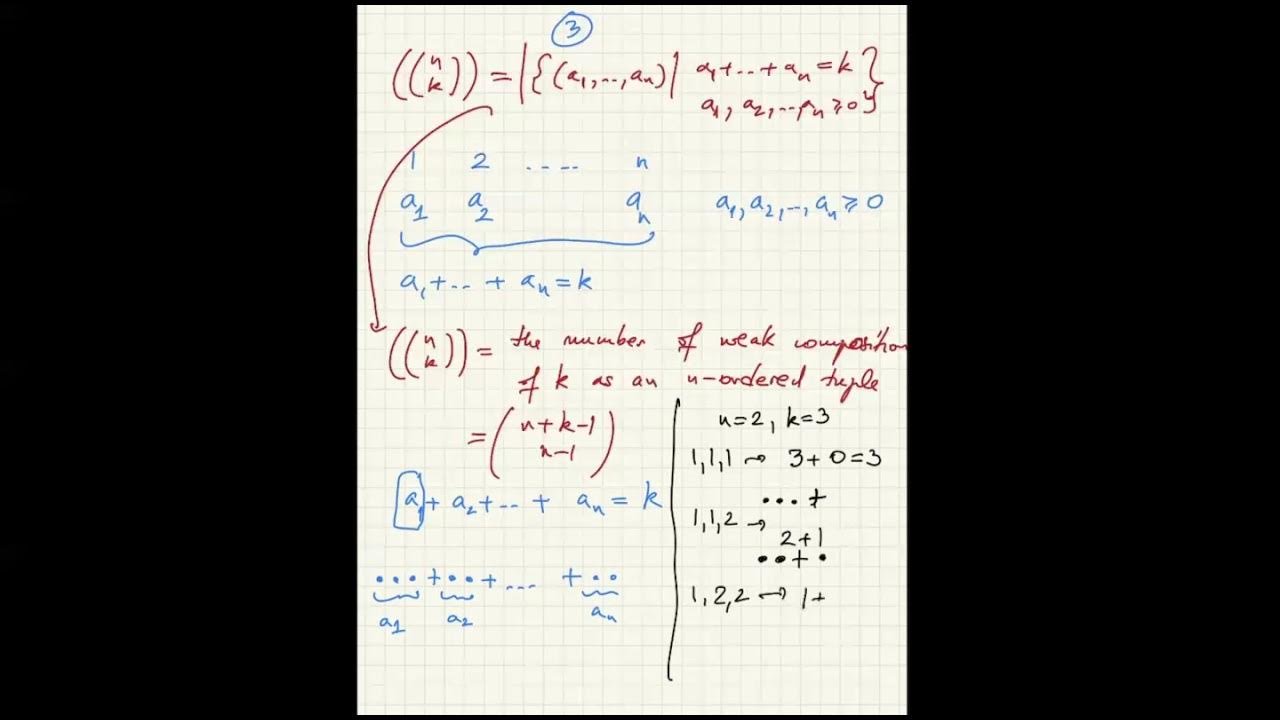 3
((n k)) = |{(a1, .., an) | a1 + ... + an = k
a1, a2, ..., an ≥ 0}|
1 2 ..... n
a1 a2 an a1, a2, .., an ≥ 0
a1 + .. + an = k
((n k)) = the number of weak composition
of k as an n-ordered tuple
= (n+k-1 n-1)
a1 + a2 + .. + an = k
••• + •• + .... + ••
a1 a2 an
n=2, k=3
1,1,1 → 3+0=3
••• +
1,1,2 → 2+1
•• + •
1,2,2 → 1+